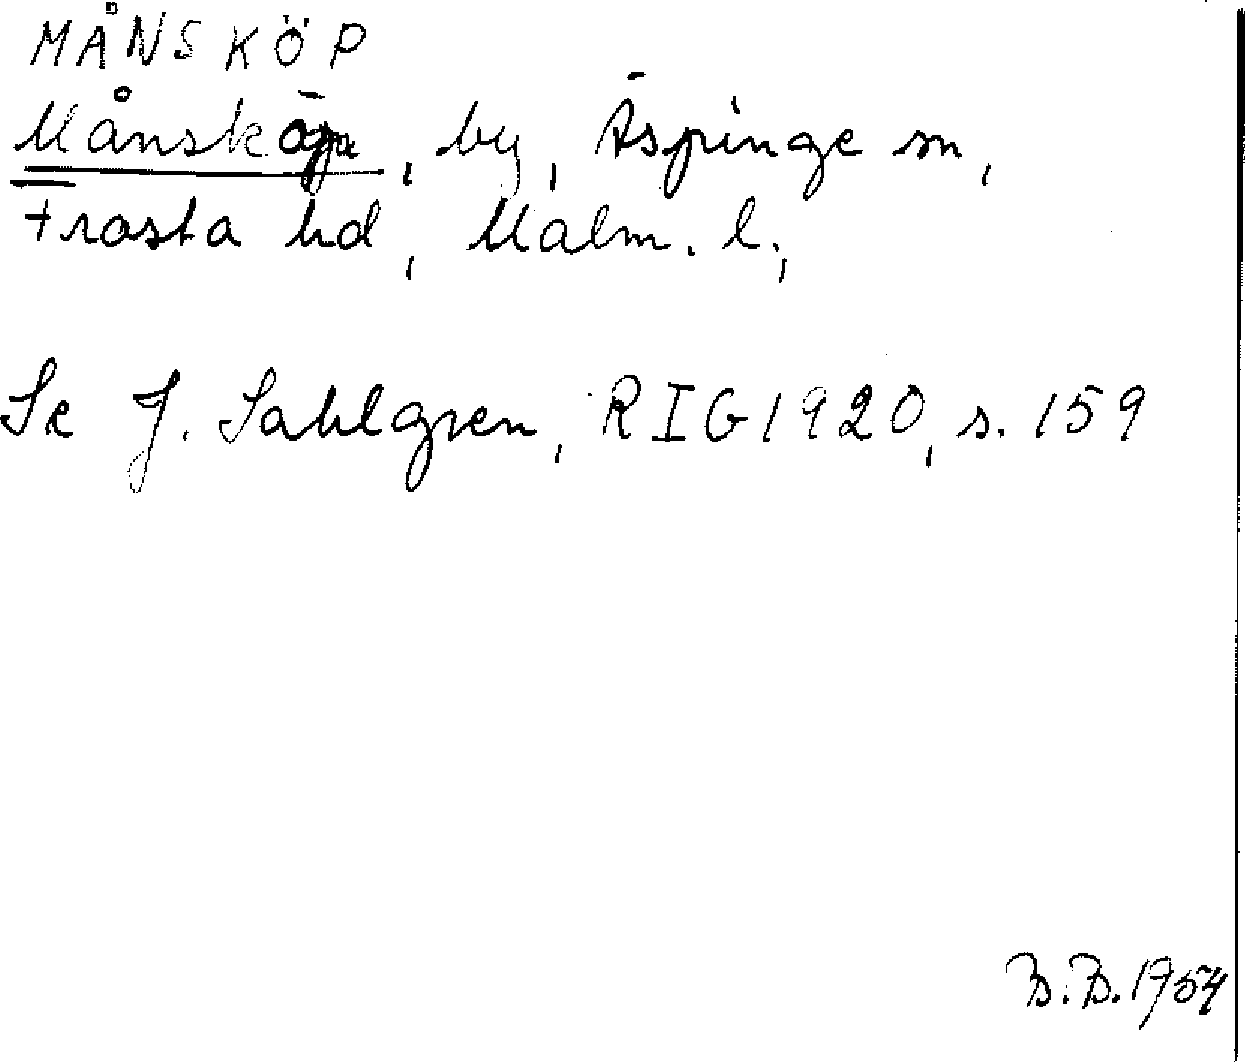 MÅNSKÖP
Månsköp, by, Äspinge sn,
Frosta hd, Malm. l.,
Se J. Sahlgren, RIG 1920, s. 159
B. B. 1954